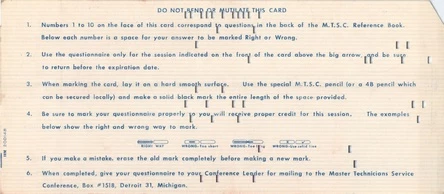 DO NOT BEND OR MUTILATE THIS CARD
1. Numbers 1 to 10 on the face of this card correspond to questions in the back of the M.T.S.C. Reference Book.
Below each number is a space for your answer to be marked Right or Wrong.
2. Use the questionnaire only for the session indicated on the front of the card above the big arrow, and be sure
to return before the expiration date.
3. When marking the card, lay it on a hard smooth surface. Use the special M.T.S.C. pencil (or a 4B pencil which
can be secured locally) and make a solid black mark the entire length of the space provided.
4. Be sure to mark your questionnaire properly so you will receive proper credit for this session. The examples
below show the right and wrong way to mark.
RIGHT WAY WRONG-Too short WRONG-Too long WRONG-Use solid line
5. If you make a mistake, erase the old mark completely before making a new mark.
6. When completed, give your questionnaire to your Conference Leader for mailing to the Master Technicians Service
Conference, Box #1518, Detroit 31, Michigan.